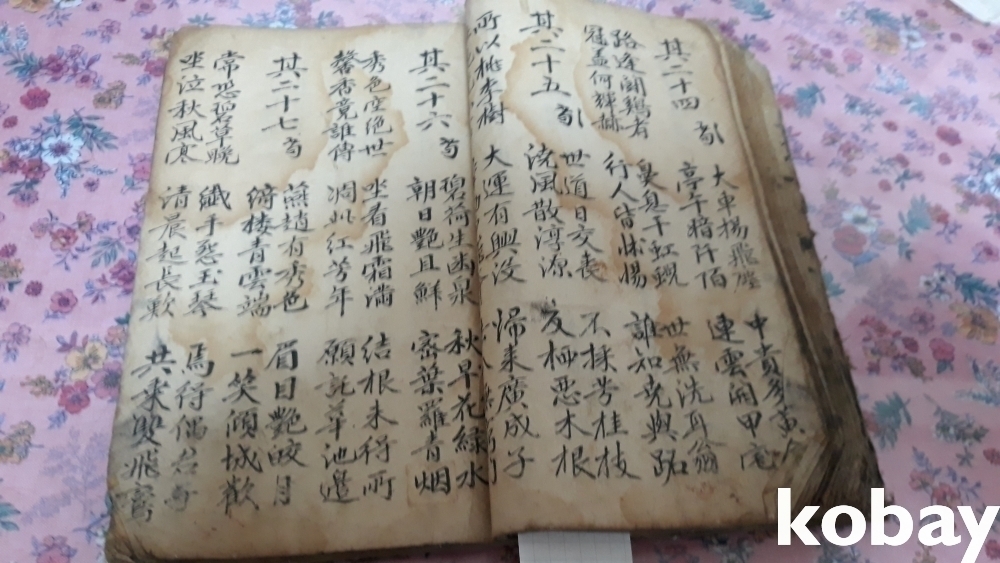 其二十四
大車揚飛塵
亭午暗阡佰
中貴多黃金
連雲開甲宅
路逢鬪鷄者
冠盖何輝赫
鼻息干虹蜺
行人皆怵惕
世無洗耳翁
誰知堯與跖
其二十五
世道日交喪
澆風散淳源
不採芳桂枝
反栖惡木根
所以桃李樹
大運有興沒
歸来廣成子
其二十六
碧荷生幽泉
朝日艷且鮮
秋早花綠水
密葉羅青烟
秀色空絕世
馨香竟誰傳
坐看飛霜滿
凋此紅芳年
結根未得所
願託華池邊
其二十七
燕趙有秀色
綺樓青雲端
眉目艷皎月
一笑傾城歡
常恐碧草晚
坐泣秋風寒
纖手怨玉琴
清晨起長歎
焉得偶君子
共乘雙飛鸞
kobay